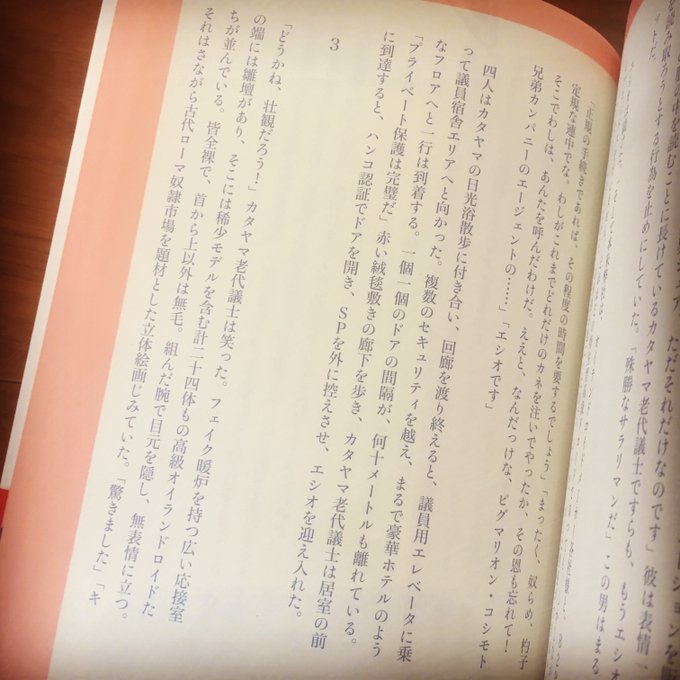 を読み取ろうとする行為を止めにしていた。「殊勝なサラリマンだ」この男はまる
「正規の手続きであれば、その程度の時間を要するでしょう」「まったく、奴らめ、杓子
定規な連中でな。わしがこれまでどれだけのカネを注いでやったか、その恩も忘れて！
そこでわしは、あんたを呼んだわけだ。ええと、なんだっけな、ピグマリオン・コシモト
兄弟カンパニーのエージェントの……」「エシオです」
四人はカタヤマの日光浴散歩に付き合い、回廊を渡り終えると、議員用エレベータに乗
って議員宿舎エリアへと向かった。複数のセキュリティを越え、まるで豪華ホテルのよう
なフロアへと一行は到着する。一個一個のドアの間隔が、何十メートルも離れている。
「プライベート保護は完璧だ」赤い絨毯敷きの廊下を歩き、カタヤマ老代議士は居室の前
に到達すると、ハンコ認証でドアを開き、ＳＰを外に控えさせ、エシオを迎え入れた。
3
「どうかね、壮観だろう！」カタヤマ老代議士は笑った。フェイク暖炉を持つ広い応接室
の端には雛壇があり、そこには稀少モデルを含む計二十四体もの高級オイランドロイドた
ちが並んでいる。皆全裸で、首から上以外は無毛。組んだ腕で目元を隠し、無表情に立つ。
それはさながら古代ローマ奴隷市場を題材とした立体絵画じみていた。「驚きました」「キ